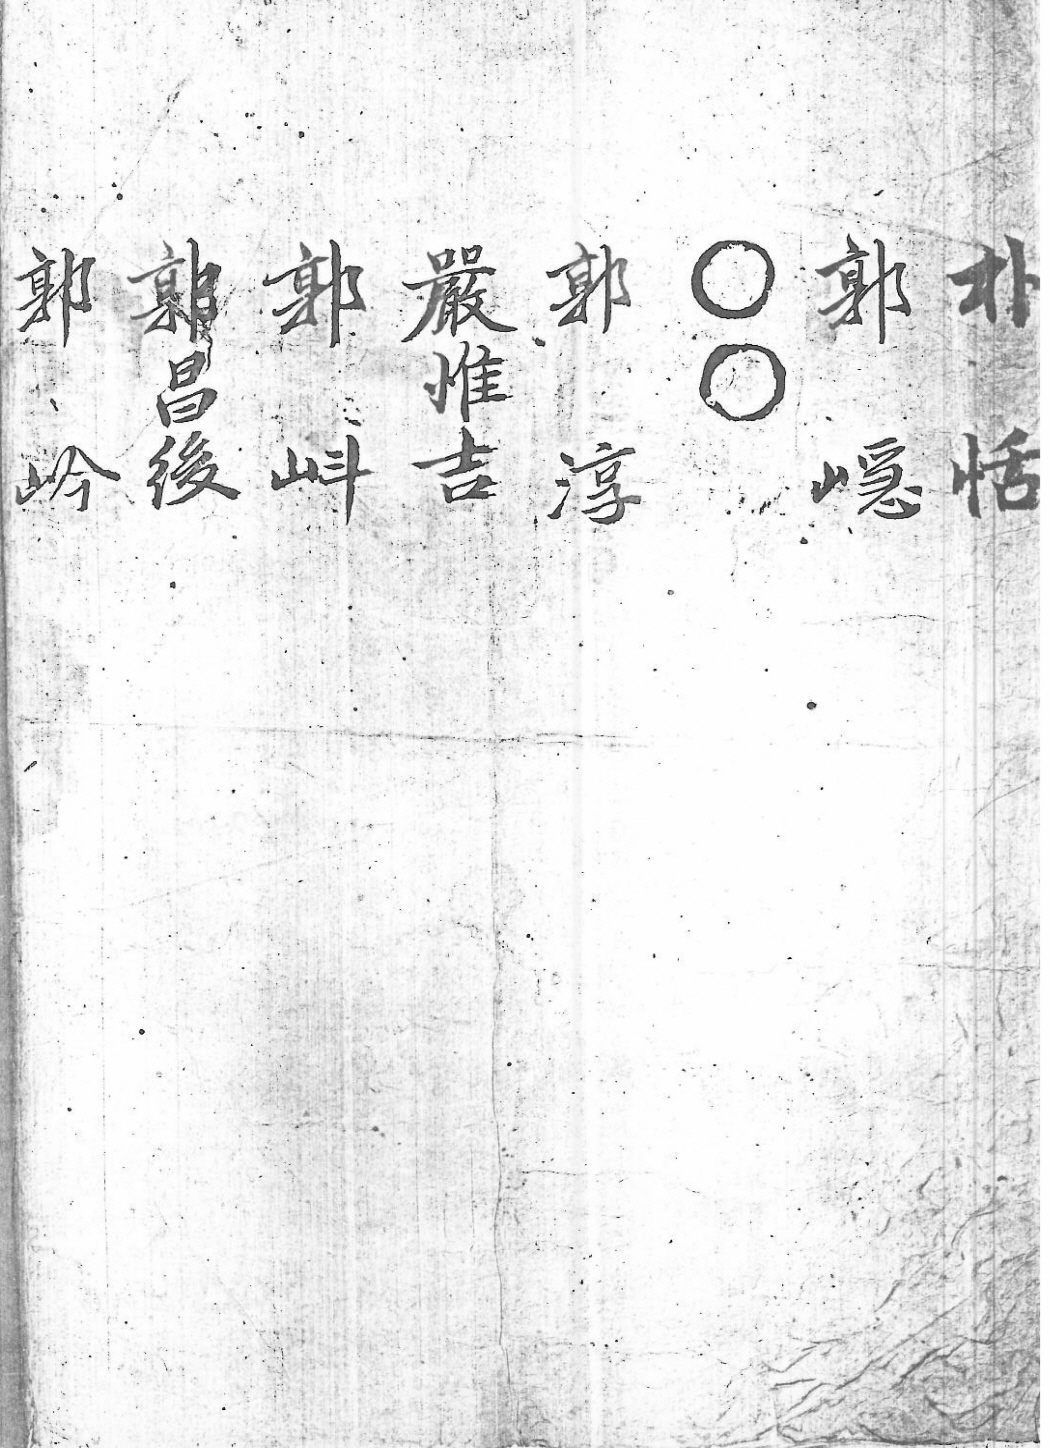 朴 恬
郭 㟴
○○
郭 淳
嚴惟吉
郭 㞳
郭昌後
郭 岒